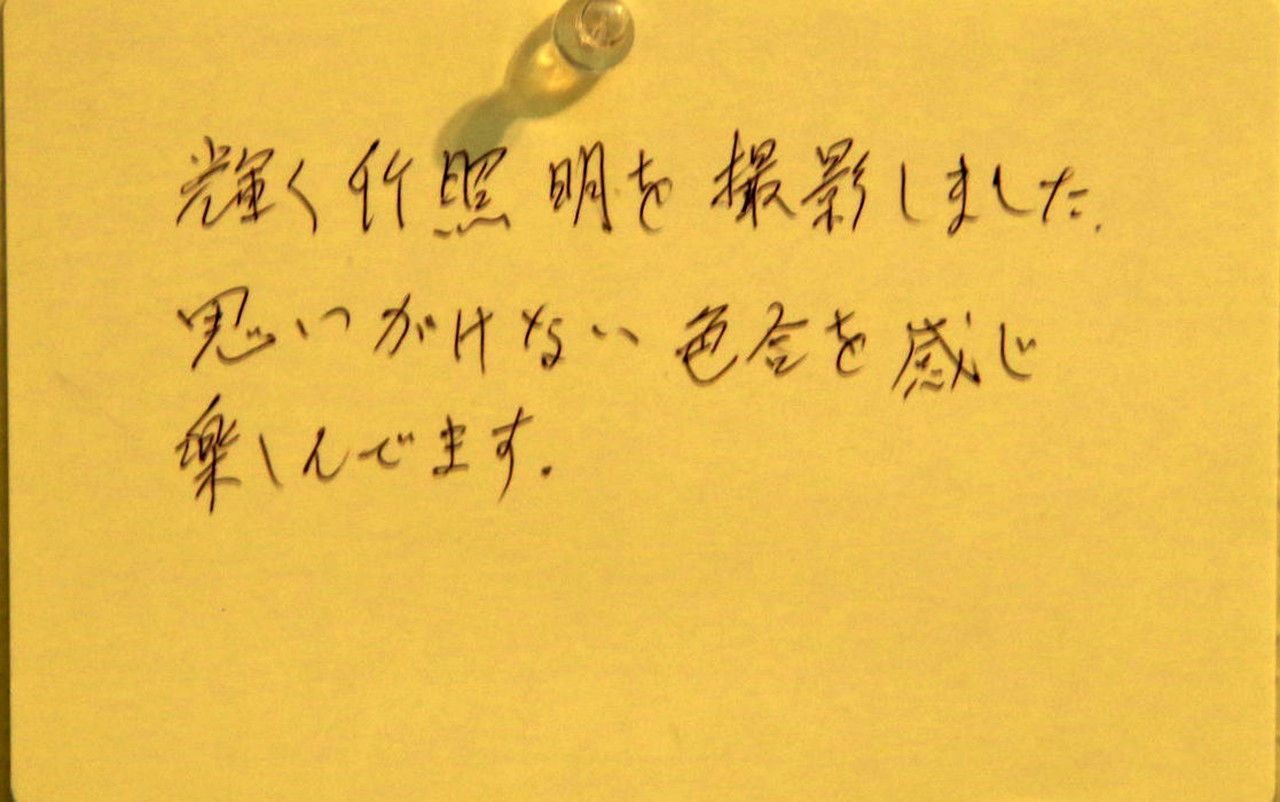 輝く竹照明を撮影しました.
思いがけない色合を感じ
楽しんでます.